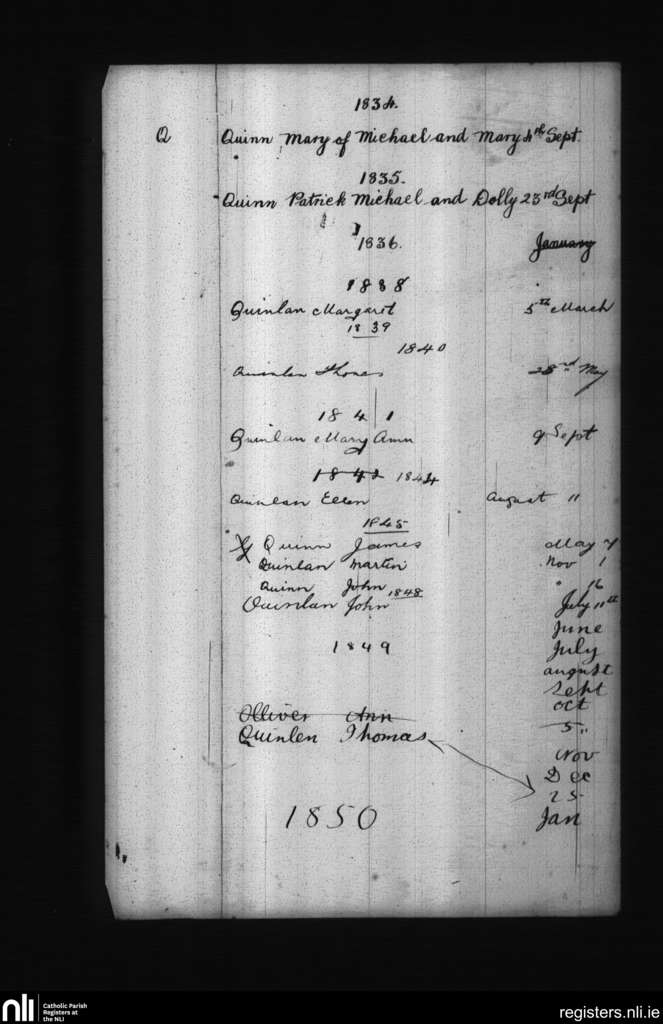 1834.
Q Quinn Mary of Michael and Mary 4th Sept.
1835.
Quinn Patrick Michael and Dolly 23rd Sept
1836. January
1838
Quinlan Margaret 5th March
1839
1840
Quinlan Thomas 28nd May
1841
Quinlan Mary Ann 9 Sept
1842 1844
Quinlan Ellen August "
1845
Quinn James May 7
Quinlan Martin Nov 1
Quinn John " 16
1848
Quinlan John July 11th
June
1849 July
august
Sept
oct
Olliver Ann 5"
Quinlen Thomas
Nov
Dec
25
1850 Jan
nli Catholic Parish Registers at the NLI
registers.nli.ie